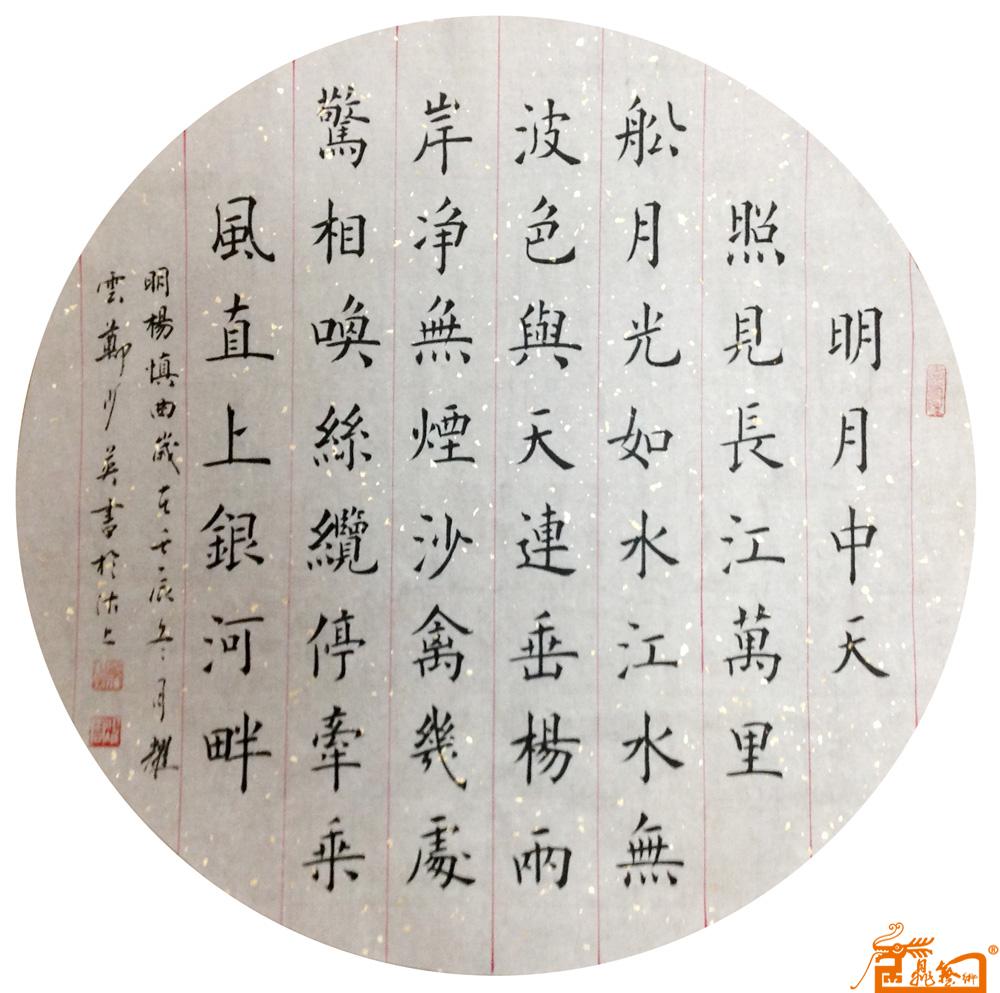 明月中天
照見長江萬里
船月光如水江水無
波色與天連垂楊兩
岸净無煙沙禽幾處
驚相喚絲纜停牽乘
風直上銀河畔
明楊慎曲歲在壬辰冬月耀
雲鄭少英書於上